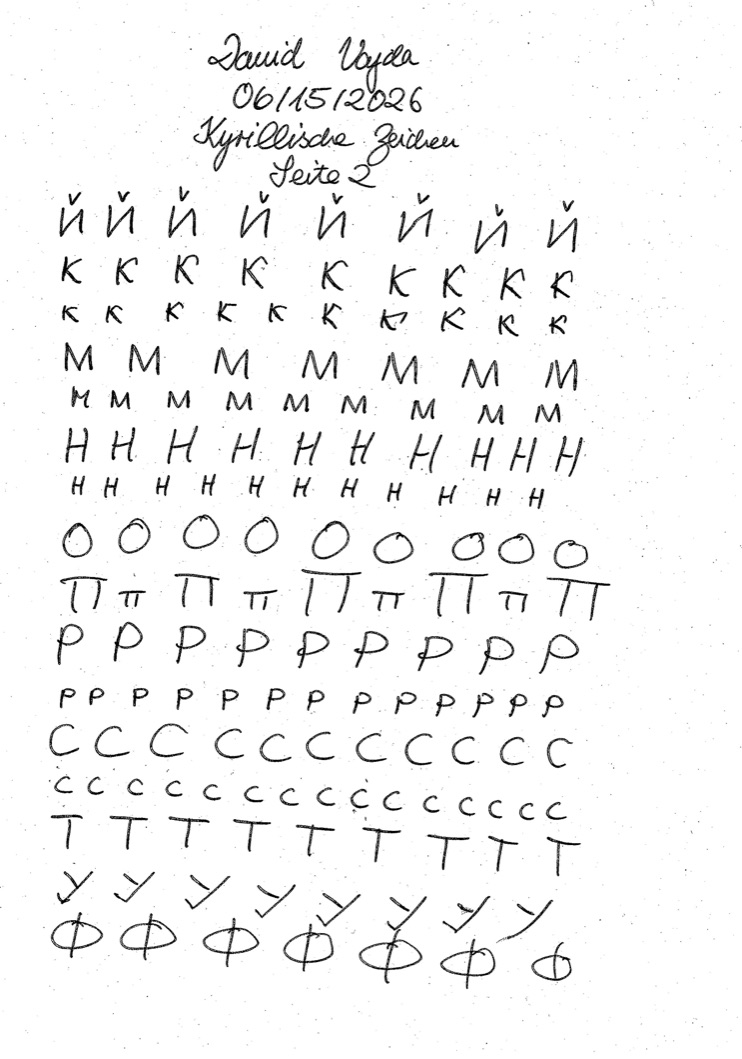 David Vajda
06/15/2026
Kyrillische Zeichen
Seite 2
Й Й Й Й Й Й Й Й
К К К К К К К К К
к к к к к к к к к к
М М М М М М М
м м м м м м м м м
Н Н Н Н Н Н Н Н Н Н
н н н н н н н н н н н
О О О О О О О О О
П п П п П п П п П
Р Р Р Р Р Р Р Р Р
р р р р р р р р р р р р р
С С С С С С С С С С С
с с с с с с с с с с с с с с
Т Т Т Т Т Т Т Т Т
У У У У У У У У
Ф Ф Ф Ф Ф Ф Ф